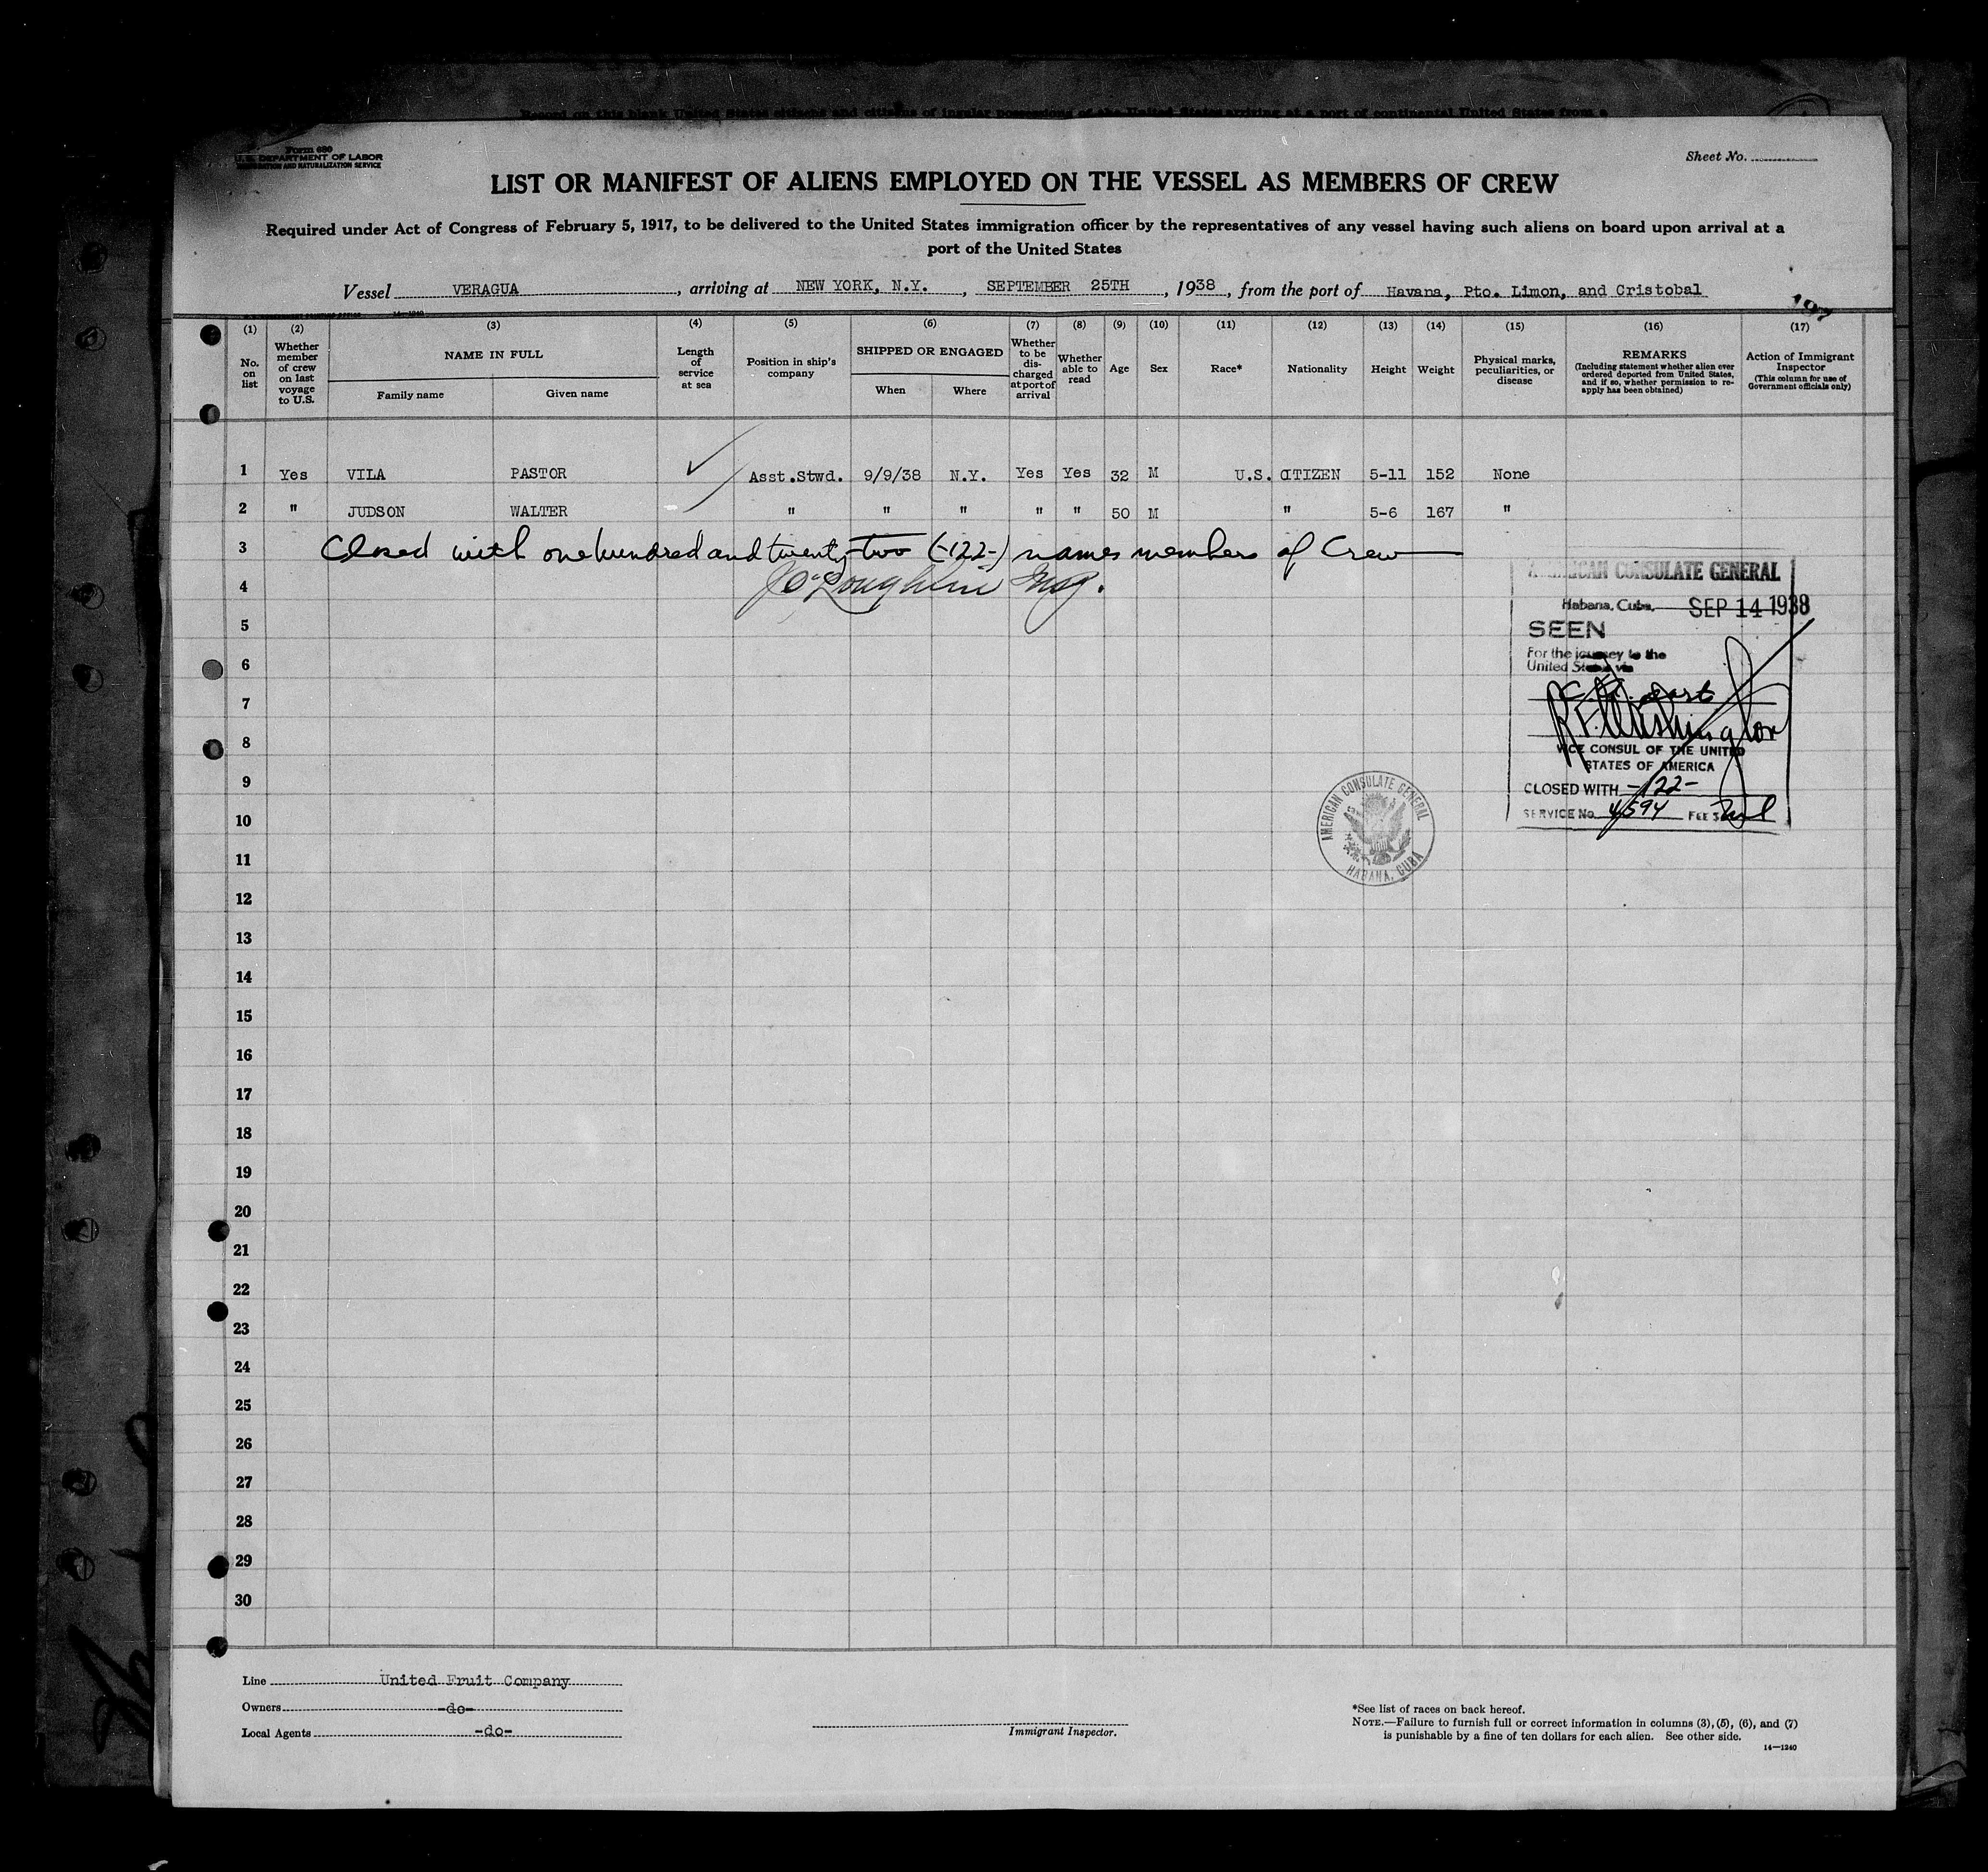 Record on this blank United States citizens and citizens of insular possessions of the United States arriving at a port of continental United States from a
Form 680
U. S. DEPARTMENT OF LABOR
IMMIGRATION AND NATURALIZATION SERVICE
Sheet No.
LIST OR MANIFEST OF ALIENS EMPLOYED ON THE VESSEL AS MEMBERS OF CREW
Required under Act of Congress of February 5, 1917, to be delivered to the United States immigration officer by the representatives of any vessel having such aliens on board upon arrival at a
port of the United States
Vessel VERAGUA, arriving at NEW YORK, N.Y., SEPTEMBER 25TH, 1938, from the port of Havana, Pto. Limon, and Cristobal
197
14—1240
(1) (2) (3) (4) (5) (6) (7) (8) (9) (10) (11) (12) (13) (14) (15) (16) (17)
No. on list
Whether member of crew on last voyage to U.S.
NAME IN FULL
Family name
Given name
Length of service at sea
Position in ship's company
SHIPPED OR ENGAGED
When
Where
Whether to be discharged at port of arrival
Whether able to read
Age
Sex
Race*
Nationality
Height
Weight
Physical marks, peculiarities, or disease
REMARKS
(Including statement whether alien ever ordered deported from United States, and if so, whether permission to re-apply has been obtained)
Action of Immigrant Inspector
(This column for use of Government officials only)
1 Yes VILA PASTOR Asst.Stwd. 9/9/38 N.Y. Yes Yes 32 M U.S. CITIZEN 5-11 152 None
2 " JUDSON WALTER " " " " " 50 M " 5-6 167 "
3 Closed with one hundred and twenty-two (-122-) names members of Crew
4
5
6
7
8
9
10
11
12
13
14
15
16
17
18
19
20
21
22
23
24
25
26
27
28
29
30
AMERICAN CONSULATE GENERAL
Habana, Cuba, SEP 14 1938
SEEN
For the journey to the
United States via
VICE CONSUL OF THE UNITED
STATES OF AMERICA
CLOSED WITH -122-
SERVICE No. 4594 FEE $
AMERICAN CONSULATE GENERAL
HABANA, CUBA
Line United Fruit Company
Owners -do-
Local Agents -do-
Immigrant Inspector.
*See list of races on back hereof.
NOTE.—Failure to furnish full or correct information in columns (3), (5), (6), and (7)
is punishable by a fine of ten dollars for each alien. See other side.
14—1240